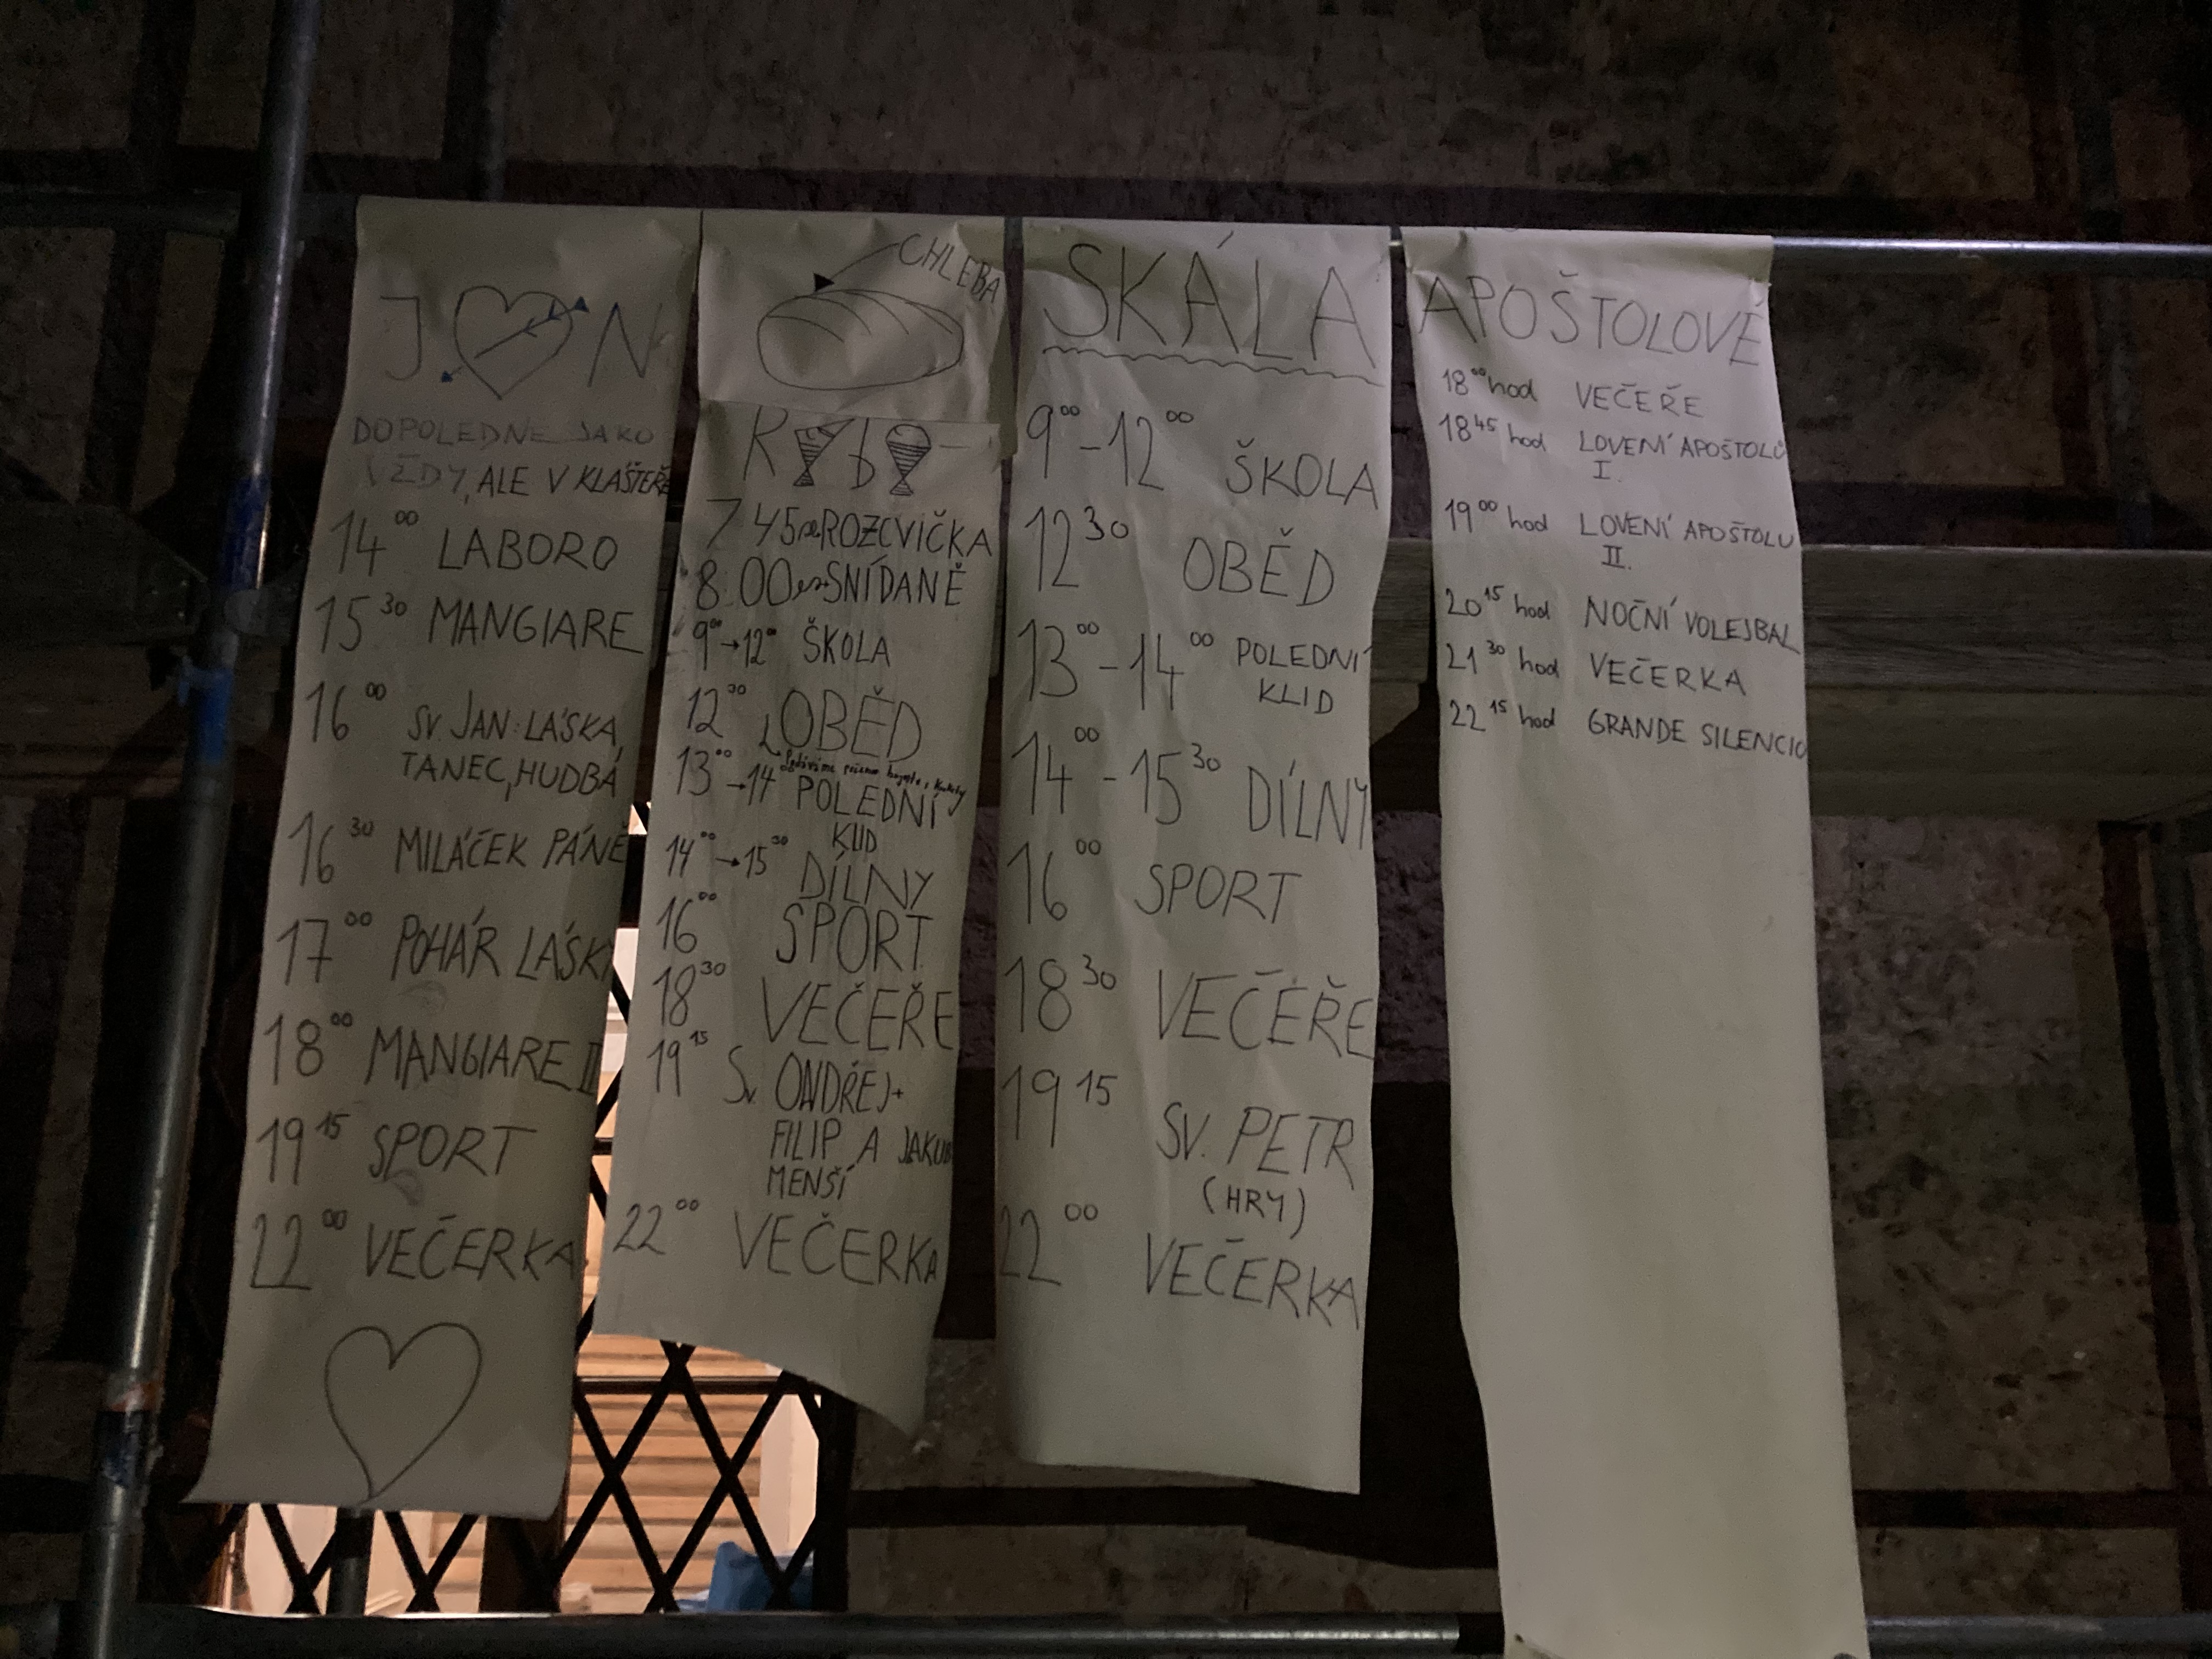 J N
DOPOLEDNE JAKO
VŽDY, ALE V KLÁŠTEŘE
14 00 LABORO
15 30 MANGIARE
16 00 SV. JAN: LÁSKA,
TANEC, HUDBA
16 30 MILÁČEK PÁNĚ
17 00 POHÁR LÁSKY
18 00 MANGIARE II
19 15 SPORT
22 00 VEČERKA
CHLEBA
RYBY
7 45 ROZCVIČKA
8:00 SNÍDANĚ
9 00 → 12 00 ŠKOLA
12 30 OBĚD
13 00 → 14 00 POLEDNÍ
KLID
14 00 → 15 30 DÍLNY
16 00 SPORT
18 30 VEČEŘE
19 15 SV. ONDŘEJ +
FILIP A JAKUB
MENŠÍ
22 00 VEČERKA
SKÁLA
9 00 - 12 00 ŠKOLA
12 30 OBĚD
13 00 - 14 00 POLEDNÍ
KLID
14 00 - 15 30 DÍLNY
16 00 SPORT
18 30 VEČEŘE
19 15 SV. PETR
(HRY)
22 00 VEČERKA
APOŠTOLOVÉ
18 00 hod VEČEŘE
18 45 hod LOVENÍ APOŠTOLŮ
I.
19 00 hod LOVENÍ APOŠTOLU
II.
20 15 hod NOČNÍ VOLEJBAL
21 30 hod VEČERKA
22 15 hod GRANDE SILENCIO